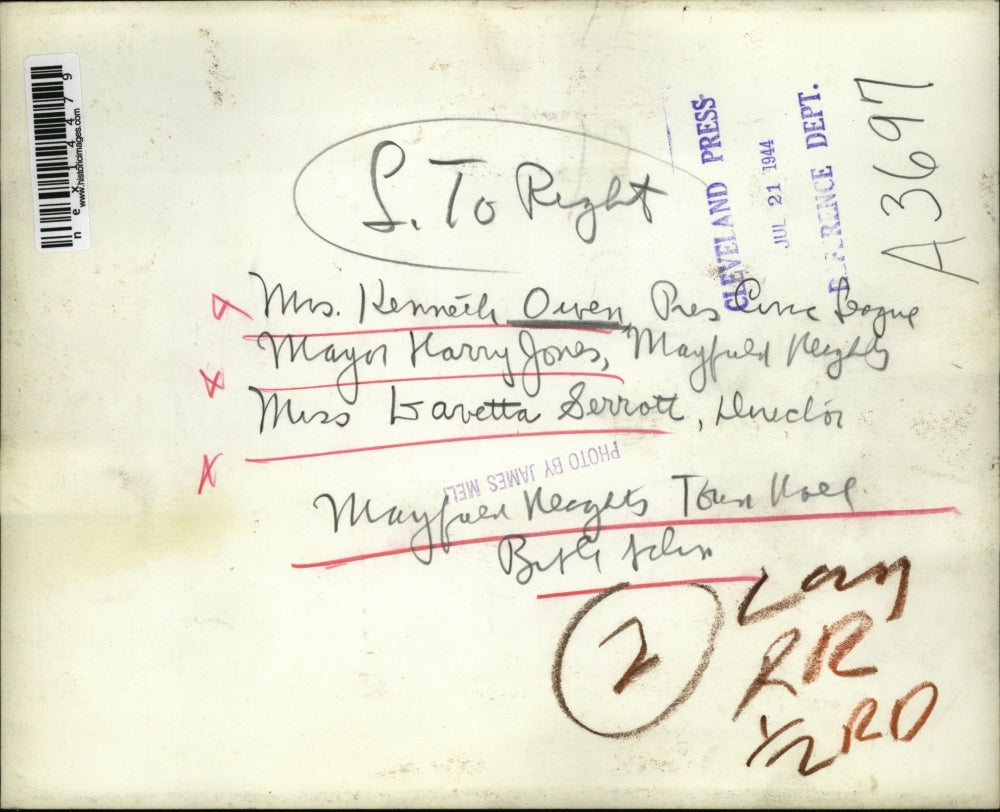 nex14479
www.historicimages.com
CLEVELAND PRESS
JUL 21 1944
DEPT.
A3697
L. To Right
Mrs. Kenneth Owen, Pres Civic League
Mayor Harry Jones, Mayfield Heights
Miss Lavetta Serrott, Director
PHOTO BY JAMES MELI
Mayfield Heights Town Hall
2
RR
1/2 RD